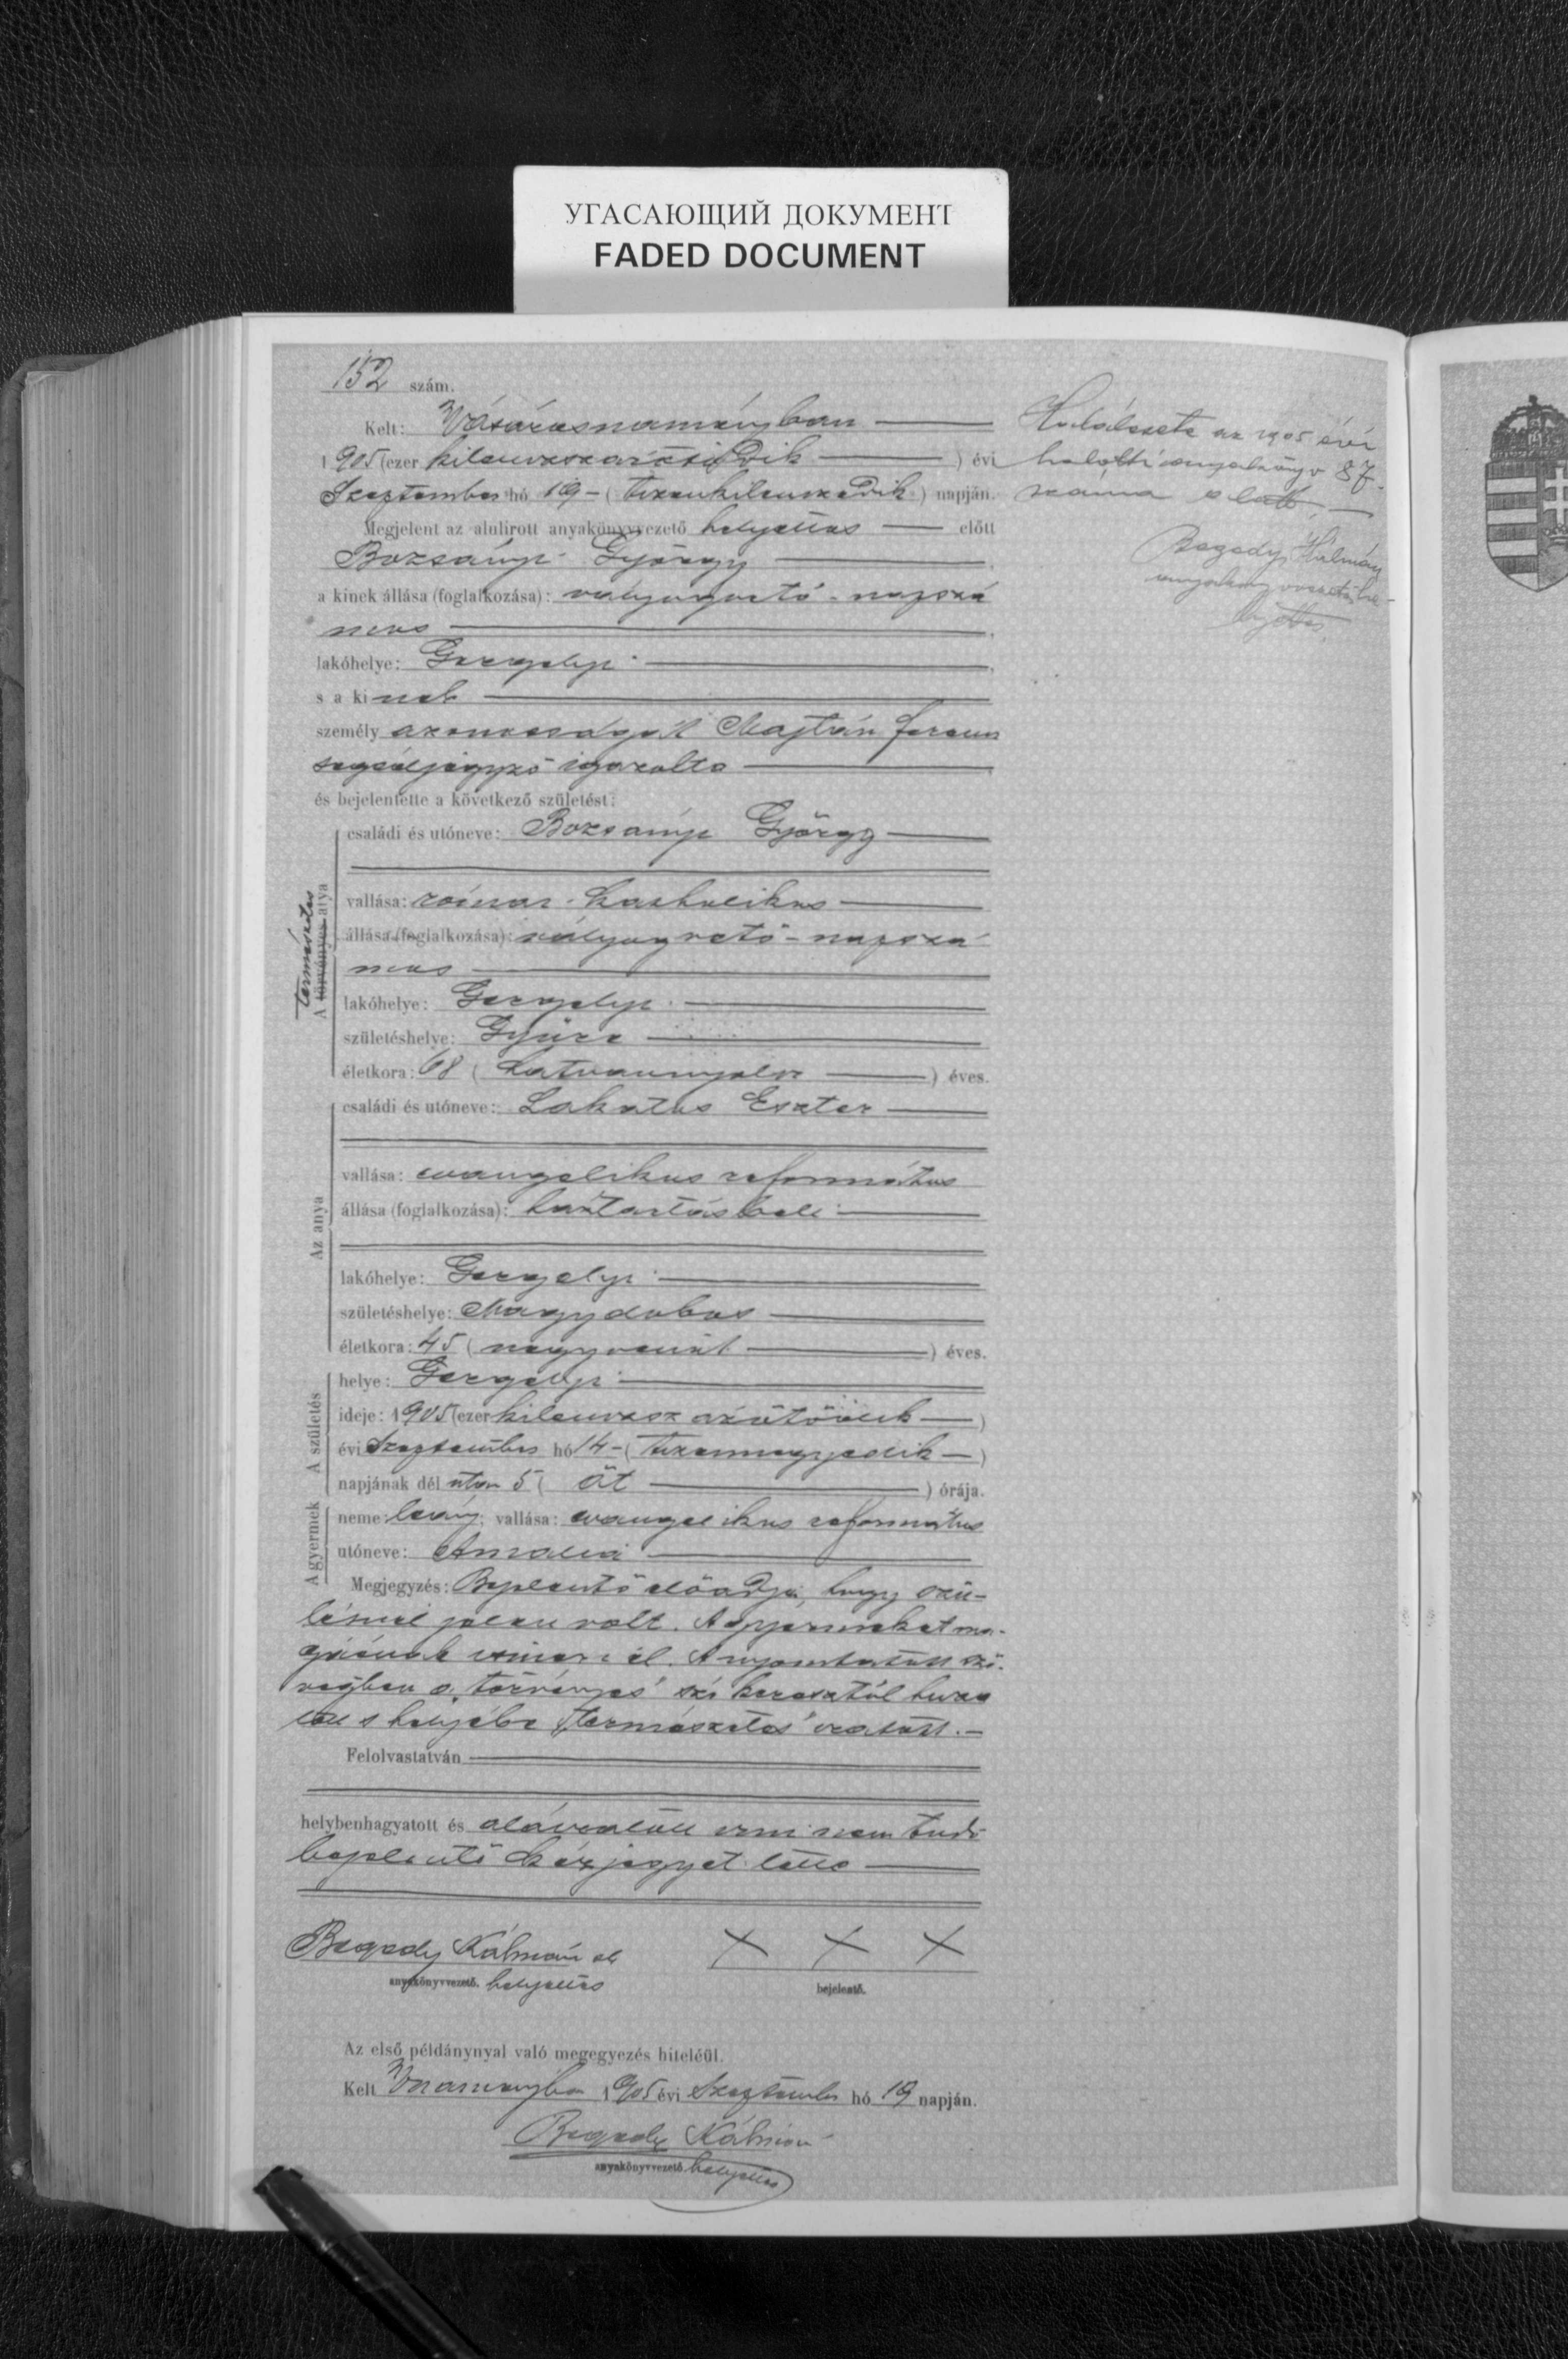 УГАСАЮЩИЙ ДОКУМЕНТ
FADED DOCUMENT
152 szám.
Kelt: Vásárosnaményban
1905 (ezer kilenczszázötödik) évi
Szeptember hó 19 - (tizenkilenczedik) napján.
Megjelent az alulirott anyakönyvvezető helyettes előtt
Bozsányi György
a kinek állása (foglalkozása): vályogvető - napszá
mos
lakóhelye: Gergelyi
s a kinek
személy azonosságát Majtán Ferencz
segédjegyző igazolta
és bejelentette a következő születést:
A törvényes atya
természetes
családi és utóneve: Bozsányi György
vallása: római katholikus
állása (foglalkozása): vályogvető - napszá
mos
lakóhelye: Gergelyi
születéshelye: Gyüre
életkora: 68 (hatvannyolcz) éves.
Az anya
családi és utóneve: Lakatos Eszter
vallása: evangelikus református
állása (foglalkozása): háztartásbeli
lakóhelye: Gergelyi
születéshelye: Nagydobos
életkora: 45 (negyvenöt) éves.
A születés
helye: Gergelyi
ideje: 1905 (ezer kilenczszázötödik)
évi Szeptember hó 14 - (tizennegyedik)
napjának dél után 5 (öt) órája.
A gyermek
neme: leány; vallása: evangelikus református
utóneve: Amália
Megjegyzés: Bejelentő előadja, hogy szü-
lésnél jelen volt. A gyermeket ma-
gáénak ismeri el. A nyomtatott szö-
vegben a "törvényes" szó keresztül huza
tott s helyébe "természetes" iratott.
Felolvastatván
helybenhagyatott és aláiratott irni nem tudó
bejelentő kézjegyet tette
Begedy Kálmán
anyakönyvvezető. helyettes
X X X
bejelentő.
Az első példánynyal való megegyezés hiteléül.
Kelt Vnaményba 1905 évi Szeptember hó 19 napján.
Begedy Kálmán
anyakönyvvezető helyettes
Halálesete az 1905 évi
halotti anyakönyv 87.
száma alatt.
Begedy Kálmán
anyakönyvvezető he-
lyettes